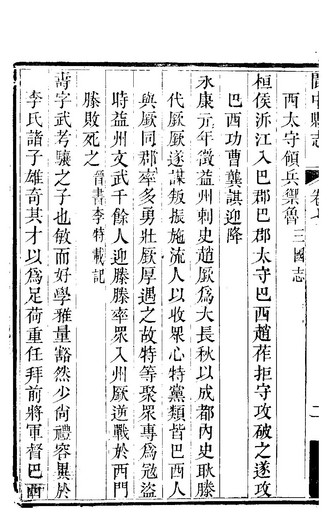 閬中縣志 卷七 二
西太守領兵禦魯三國志
桓侯泝江入巴郡巴郡太守巴西趙莋拒守攻破之遂攻
巴西功曹龔諶迎降
永康元年徵益州刺史趙廞爲大長秋以成都內史耿滕
代廞廞遂謀叛振施流人以收衆心特黨類皆巴西人
與廞同郡率多勇壯廞厚遇之故特等聚眾專爲冦盜
時益州文武千餘人迎滕滕率眾入州廞逆戰於西門
滕敗死之晉書李特載記
壽字武考驤之子也敏而好學雅量豁然少尙禮容異於
李氏諸子雄奇其才以爲足荷重任拜前將軍督巴西